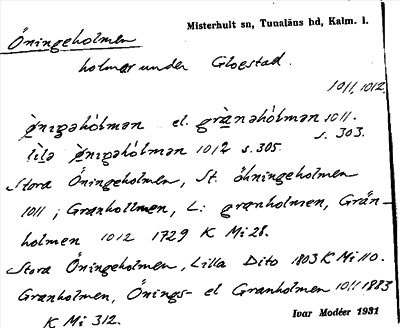 Misterhult sn, Tunaläns hd, Kalm. l.
Öningeholmen
holmar under Gloestad.
1011, 1012.
ö̀nıŋəhólmən el. grànəhólmən 1011.
s. 303.
lìlə ö̀nıŋəhólmən 1012 s. 305.
Stora Öningeholmen, St. öhningeholmen
1011; Granhollmen, L: granholmen, Grän-
holmen 1012 1729 K Mi 28.
Stora Öningeholmen, Lilla Dito 1803 K Mi 110.
Granholmen, Önings- el Granholmen 1011 1883
K Mi 312.
Ivar Modéer 1931